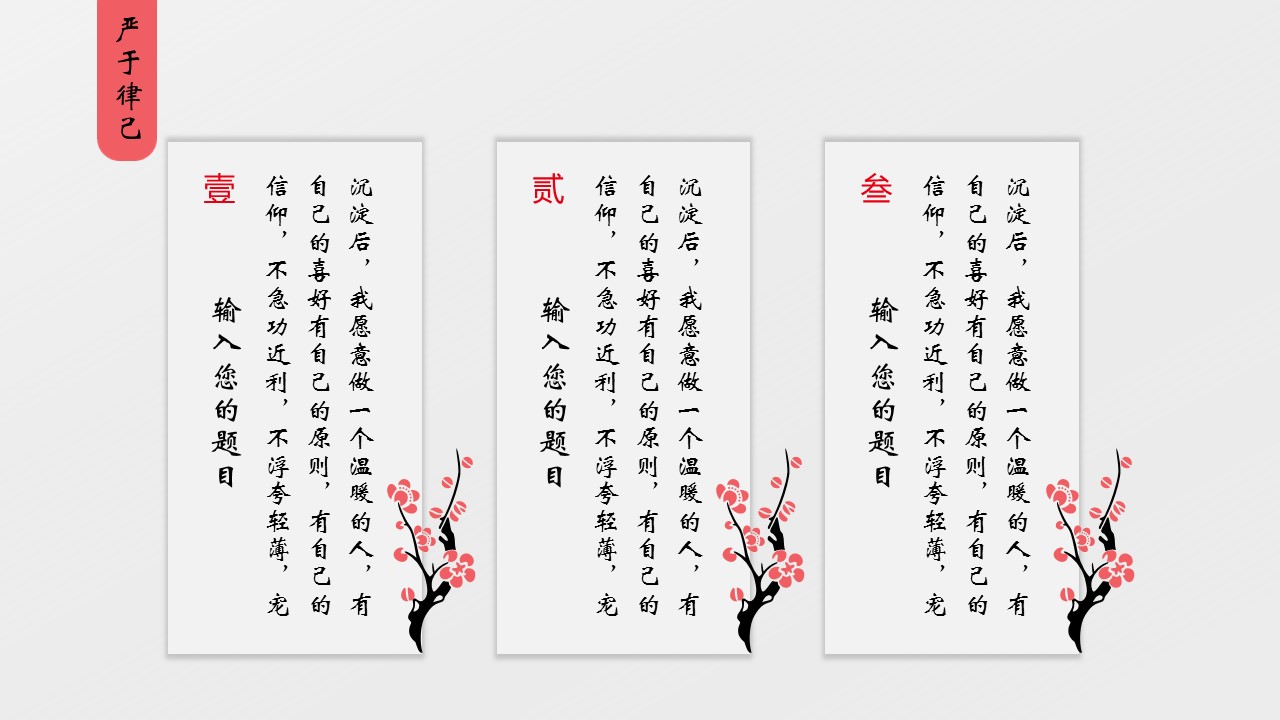 严于律己
壹
输入您的题目
沉淀后，我愿意做一个温暖的人，有
自己的喜好有自己的原则，有自己的
信仰，不急功近利，不浮夸轻薄，宠
贰
输入您的题目
沉淀后，我愿意做一个温暖的人，有
自己的喜好有自己的原则，有自己的
信仰，不急功近利，不浮夸轻薄，宠
叁
输入您的题目
沉淀后，我愿意做一个温暖的人，有
自己的喜好有自己的原则，有自己的
信仰，不急功近利，不浮夸轻薄，宠